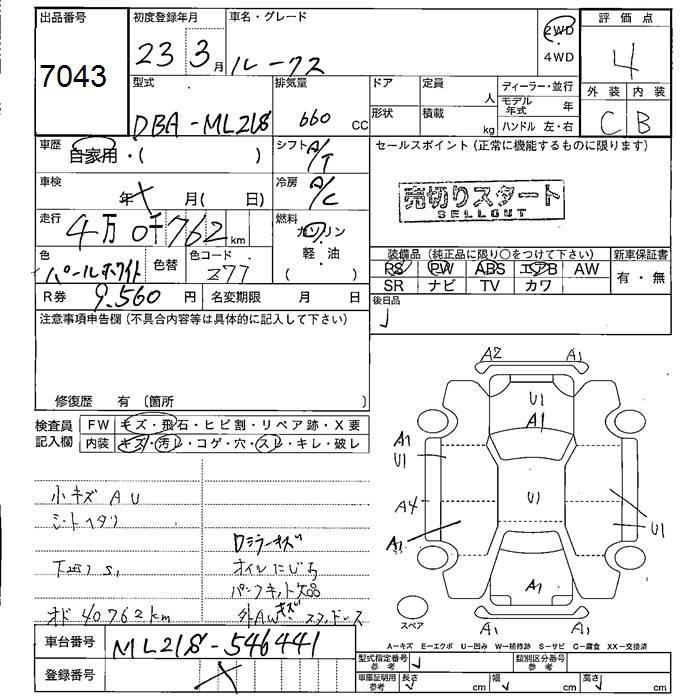 出品番号 初度登録年月 車名・グレード 2WD 4WD 評価点
7043 23 3月 ルークス 4
外装 内装
C B
型式 排気量 ドア 定員 人 ディーラー・並行
DBA-ML21S 660 CC 形状 積載 kg モデル年式 年
ハンドル 左・右
車歴 自家用・( ) シフト A/T セールスポイント(正常に機能するものに限ります)
車検 年 月( 日) 冷房 A/C
売切りスタート
SELLOUT
走行 4万0千762km 燃料 ガソリン
軽・油
( )
色 パールホワイト 色替 色コード Z77
装備品(純正品に限り○をつけて下さい) 新車保証書
PS PW ABS エアB AW 有・無
SR ナビ TV カワ
R券 9,560円 名変期限 月 日
後日品
注意事項申告欄(不具合内容等は具体的に記入して下さい)
修復歴 有 (箇所 )
検査員記入欄 FW キズ・飛石・ヒビ割・リペア跡・X要
内装 キズ・汚レ・コゲ・穴・スレ・キレ・破レ
小キズ A U
シートヘタリ
下廻り S1
オド 40,762km
Dミラーキズ
オイルにじみ
パンクキット欠品
外AWキズ スタッドレス
A2 A1
U1
A1
A1
U1
U1
A4
A1
U1
A1
A1 A1
スペア
A-キズ E-エクボ U-凹み W-補修跡 S-サビ C-腐食 XX-交換済
車台番号 ML21S-546441
登録番号
型式指定番号 参考 類別区分番号 参考
車庫証明用 参考 長さ cm 幅 cm 高さ cm